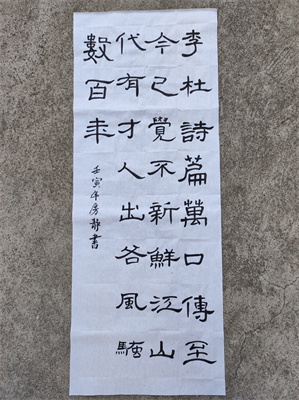 李杜詩篇萬口傳至
今已覺不新鮮江山
代有才人出各風騷
數百年
壬寅年房静書